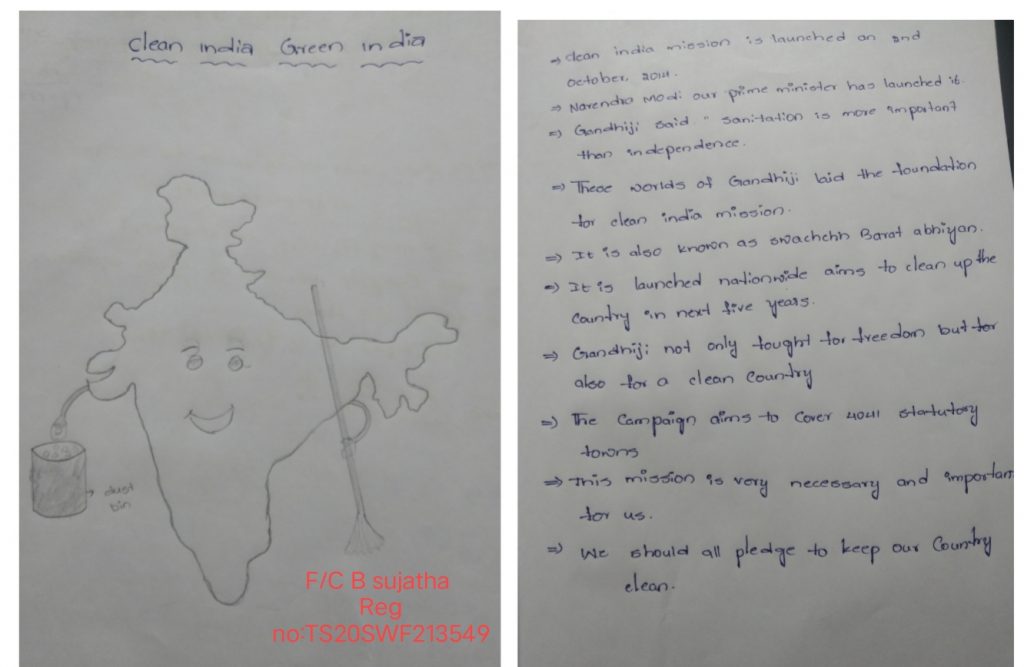 Clean india Green india
dust
bin
F/C B sujatha
Reg
no:TS20SWF213549
⇒ clean india mission is launched an 2nd
october, 2014.
⇒ Narendra Modi our prime minister has launched it.
⇒ Gandhiji said " sanitation is more important
than independence.
⇒ These worlds of Gandhiji laid the foundation
for clean india mission.
⇒ It is also known as swachchh Barat abhiyan.
⇒ It is launched nationwide aims to clean up the
Country in next five years.
⇒ Gandhiji not only fought for freedom but for
also for a clean Country
⇒ The Campaign aims to Cover 4041 statutory
towns
⇒ This mission is very necessary and importan
for us.
⇒ We should all pledge to keep our Country
clean.